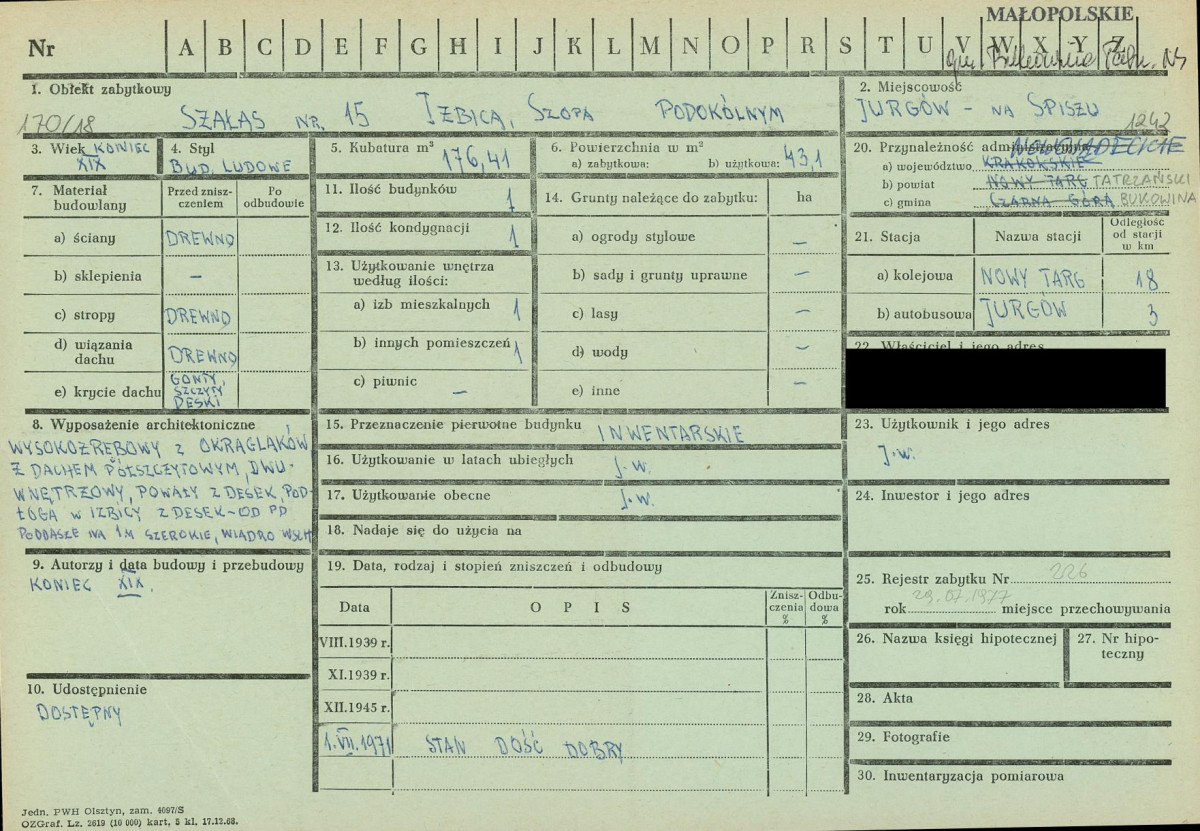 MAŁOPOLSKIE
Nr A B C D E F G H I J K L M N O P R S T U V W X Y Z
1. Obiekt zabytkowy
170/18 SZAŁAS NR. 15 IZBICA, SZOPA PODOKÓLNYM
2. Miejscowość
JURGÓW – NA SPISZU
1242
3. Wiek KONIEC
XIX
4. Styl
BUD. LUDOWE
5. Kubatura m³ 176,41
6. Powierzchnia w m²
a) zabytkowa: b) użytkowa: 43,1
20. Przynależność administracyjna
NOWOSĄDECKIE
a) województwo KRAKOWSKIE
b) powiat NOWY TARG TATRZAŃSKI
c) gmina CZARNA GÓRA BUKOWINA
7. Materiał budowlany
Przed zniszczeniem
Po odbudowie
a) ściany DREWNO
b) sklepienia –
c) stropy DREWNO
d) wiązania dachu DREWNO
e) krycie dachu GONTY, SZCZYTY DESKI
11. Ilość budynków 1
12. Ilość kondygnacji 1
13. Użytkowanie wnętrza
według ilości:
a) izb mieszkalnych 1
b) innych pomieszczeń 1
c) piwnic –
14. Grunty należące do zabytku: ha
a) ogrody stylowe –
b) sady i grunty uprawne –
c) lasy –
d) wody –
e) inne –
21. Stacja Nazwa stacji Odległość od stacji w km
a) kolejowa NOWY TARG 18
b) autobusowa JURGÓW 3
22. Właściciel i jego adres
8. Wyposażenie architektoniczne
WYSOKOZRĘBOWY z OKRĄGLAKÓW
Z DACHEM PÓŁSZCZYTOWYM, DWU-
WNĘTRZOWY, POWAŁY Z DESEK, POD-
ŁOGA W IZBICY Z DESEK – OD PD
PODDASZE NA 1M SZEROKIE, WIADRO WSCH
15. Przeznaczenie pierwotne budynku INWENTARSKIE
16. Użytkowanie w latach ubiegłych j.w.
17. Użytkowanie obecne j.w.
18. Nadaje się do użycia na
23. Użytkownik i jego adres
j.w.
24. Inwestor i jego adres
9. Autorzy i data budowy i przebudowy
KONIEC XIX.
19. Data, rodzaj i stopień zniszczeń i odbudowy
Data OPIS Zniszczenia % Odbudowa %
VIII.1939 r.
XI.1939 r.
XII.1945 r.
1.VII.1971 STAN DOŚĆ DOBRY
10. Udostępnienie
DOSTĘPNY
25. Rejestr zabytku Nr 226
rok 29.07.1977 miejsce przechowywania
26. Nazwa księgi hipotecznej
27. Nr hipo-
teczny
28. Akta
29. Fotografie
30. Inwentaryzacja pomiarowa
Jedn. PWH Olsztyn, zam. 4097/S
OZGraf. Lz. 2619 (10 000) kart, 5 kl. 17.12.68.